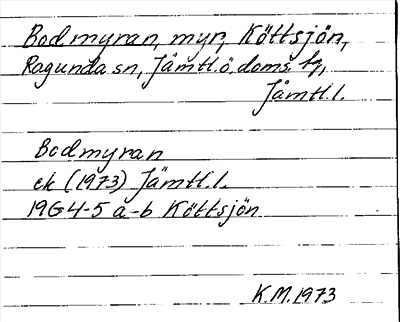 Bodmyran, myr, Köttsjön,
Ragunda sn, Jämtl.ö.doms. hg,
Jämtl.l.
Bodmyran
ek (1973) Jämtl.l.
19G4-5 a-b Köttsjön
K.M. 1973